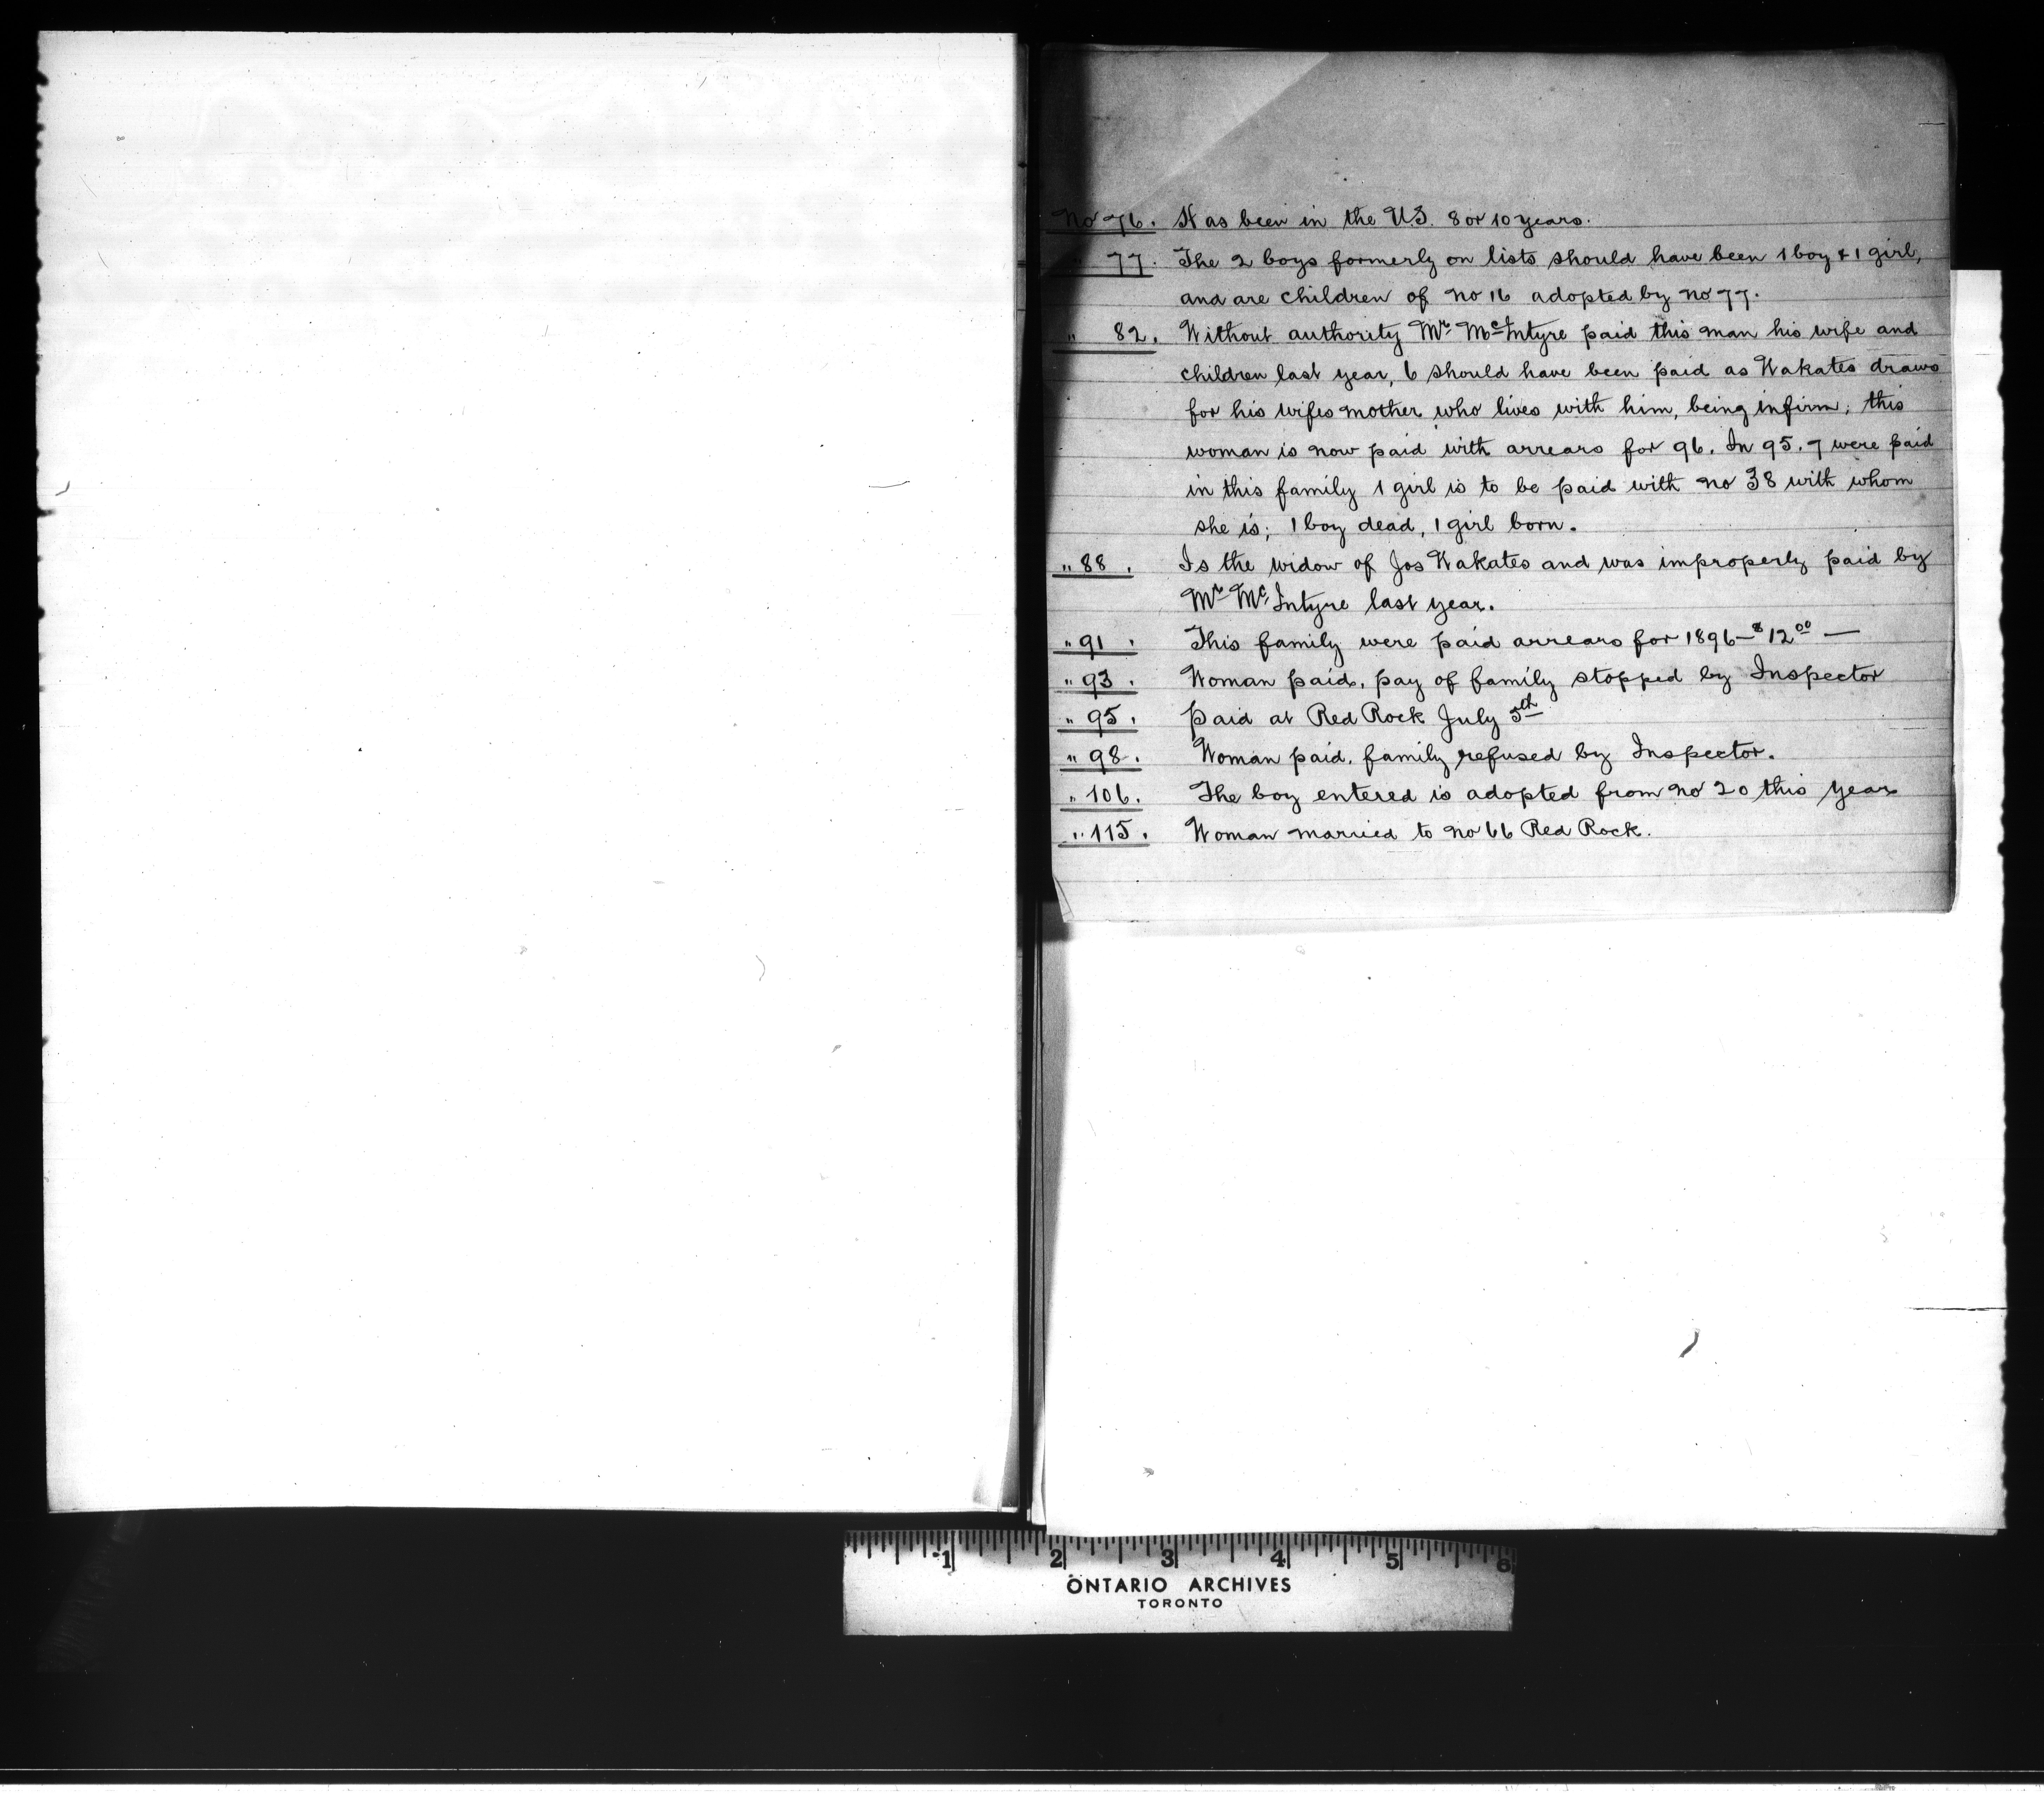 No 76. Has been in the U.S. 8 or 10 years.
" 77. The 2 boys formerly on lists should have been 1 boy & 1 girl,
and are children of no 16 adopted by no 77.
" 82. Without authority Mr. McIntyre paid this man his wife and
children last year, 6 should have been paid as Wakates draws
for his wifes mother who lives with him, being infirm; this
woman is now paid with arrears for 96. In 95. 7 were paid
in this family 1 girl is to be paid with no 38 with whom
she is; 1 boy dead, 1 girl born.
" 88. Is the widow of Jos Wakates and was improperly paid by
Mr McIntyre last year.
" 91. This family were paid arrears for 1896 — $12.00 —
" 93. Woman paid, pay of family stopped by Inspector
" 95. Paid at Red Rock July 5th
" 98. Woman paid, family refused by Inspector.
" 106. The boy entered is adopted from no 20 this year
" 115. Woman married to no 66 Red Rock.
1 2 3 4 5 6
ONTARIO ARCHIVES
TORONTO